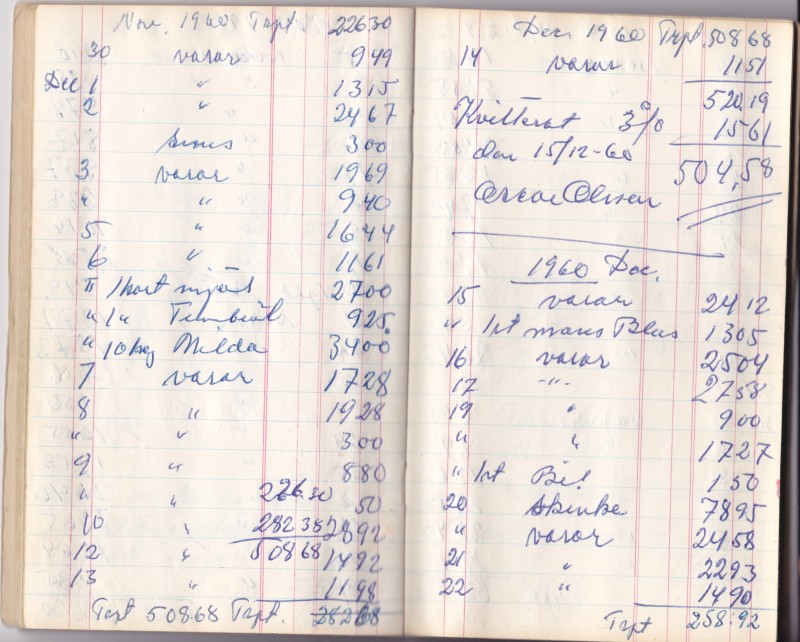 Nov. 1960 Trpt 226.30
30 varor 949
Dec 1 " 1315
2 " 2467
300
3 varor 1969
" " 940
5 " 1644
6 " 1161
" 1 kart mjöl 2700
" 1 " 925
" 10 kg Milda 3400
7 varor 1728
8 " 1928
" " 300
9 " 880
" " 226.30 50
10 " 282.38 2892
12 " 508.68 1492
13 " 1198
Trpt 508.68 Trpt. 282.38
Dec. 1960 Trpt. 508.68
14 varor 1151
520.19
Kvitterat 3% 1561
den 15/12-60 504,58
Oscar Olsson
1960 Dec.
15 varor 2412
" 1 st mans Blus 1305
16 varor 2504
17 -"- 2758
19 " 900
" " 1727
" 1 st 150
20 skinka 7895
" varor 2458
21 " 2293
22 " 1490
Trpt 258.92